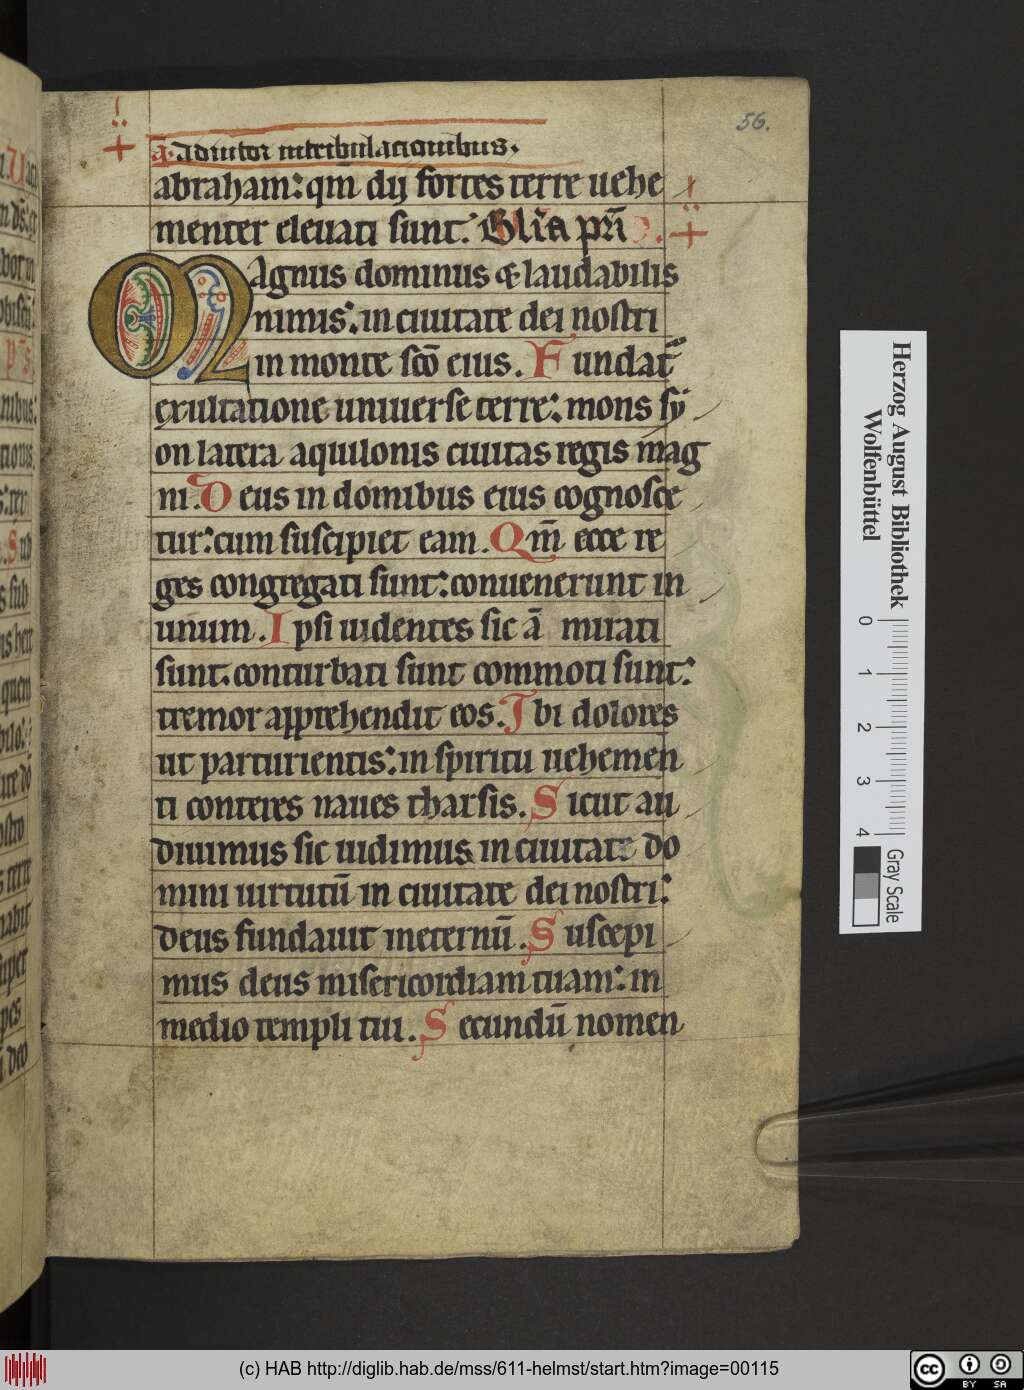 56.
a̅. Adiutor intribulacionibus.
abraham: qm̅ dij fortes terre uehe
menter eleuati sunt. Gl̅ia pr̅i
Magnus dominus & laudabilis
nimis: in ciuitate dei nostri
in monte sc̅o eius. Fundat᷑
exultatione uniuerse terre: mons sy
on latera aquilonis ciuitas regis mag
ni. Deus in domibus eius cognosce
tur: cum suscipiet eam. Qm̅ ecce re
ges congregati sunt: conuenerunt in
unum. Ipsi uidentes sic a̅ mirati
sunt. conturbati sunt commoti sunt:
tremor apprehendit eos. Ibi dolores
ut parturientis: in spiritu uehemen
ti conteres naues tharsis. Sicut au
diuimus sic uidimus in ciuitate do
mini uirtutu̅ in ciuitate dei nostri:
deus fundauit ineternu̅. Suscepi
mus deus misericordiam tuam: in
medio templi tui. Secundu̅ nomen
Herzog August Bibliothek
Wolfenbüttel
0 1 2 3 4
Gray Scale
(c) HAB http://diglib.hab.de/mss/611-helmst/start.htm?image=00115
cc BY SA